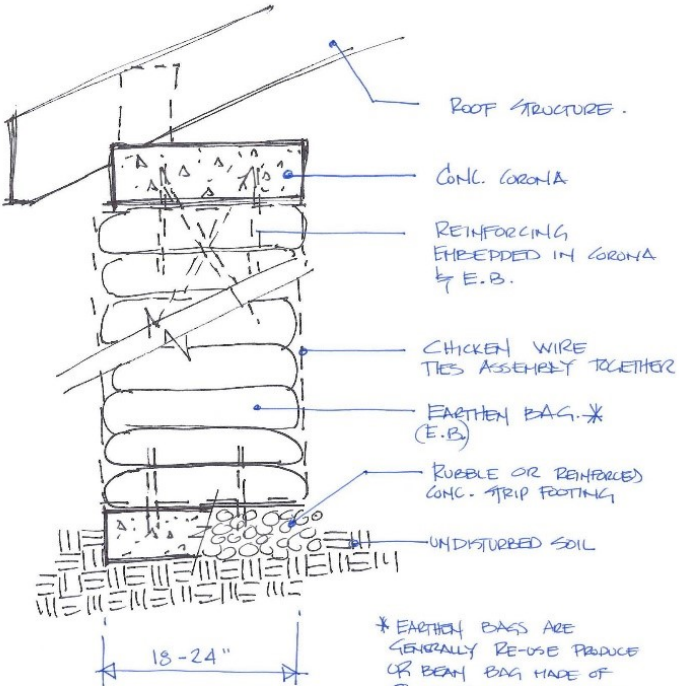 ROOF STRUCTURE.
CONC. CORONA
REINFORCING
EMBEDDED IN CORONA
& E.B.
CHICKEN WIRE
TIES ASSEMBLY TOGETHER
EARTHEN BAG. *
(E.B.)
RUBBLE OR REINFORCED
CONC. STRIP FOOTING
UNDISTURBED SOIL
18-24"
* EARTHEN BAGS ARE
GENERALLY RE-USE PRODUCE
OR BEAN BAG MADE OF